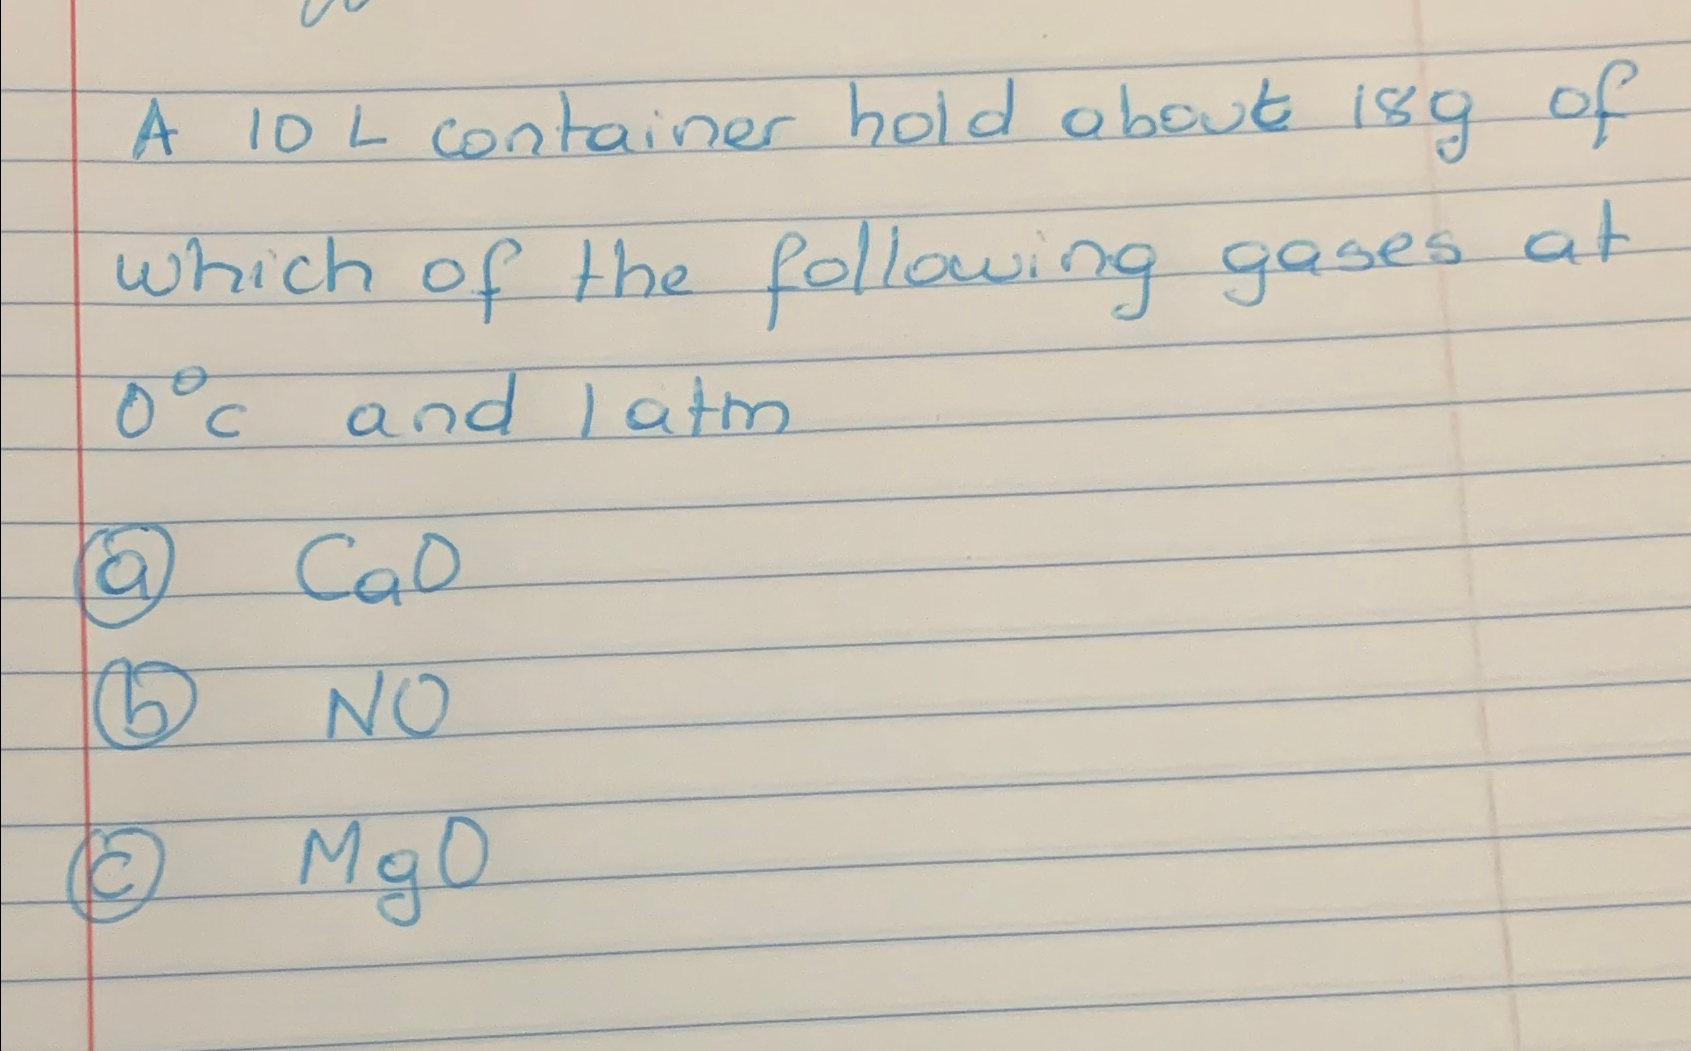 A 10 L container hold about 18g of
which of the following gases at
0°c and 1 atm
ⓐ CaO
ⓑ NO
ⓒ MgO